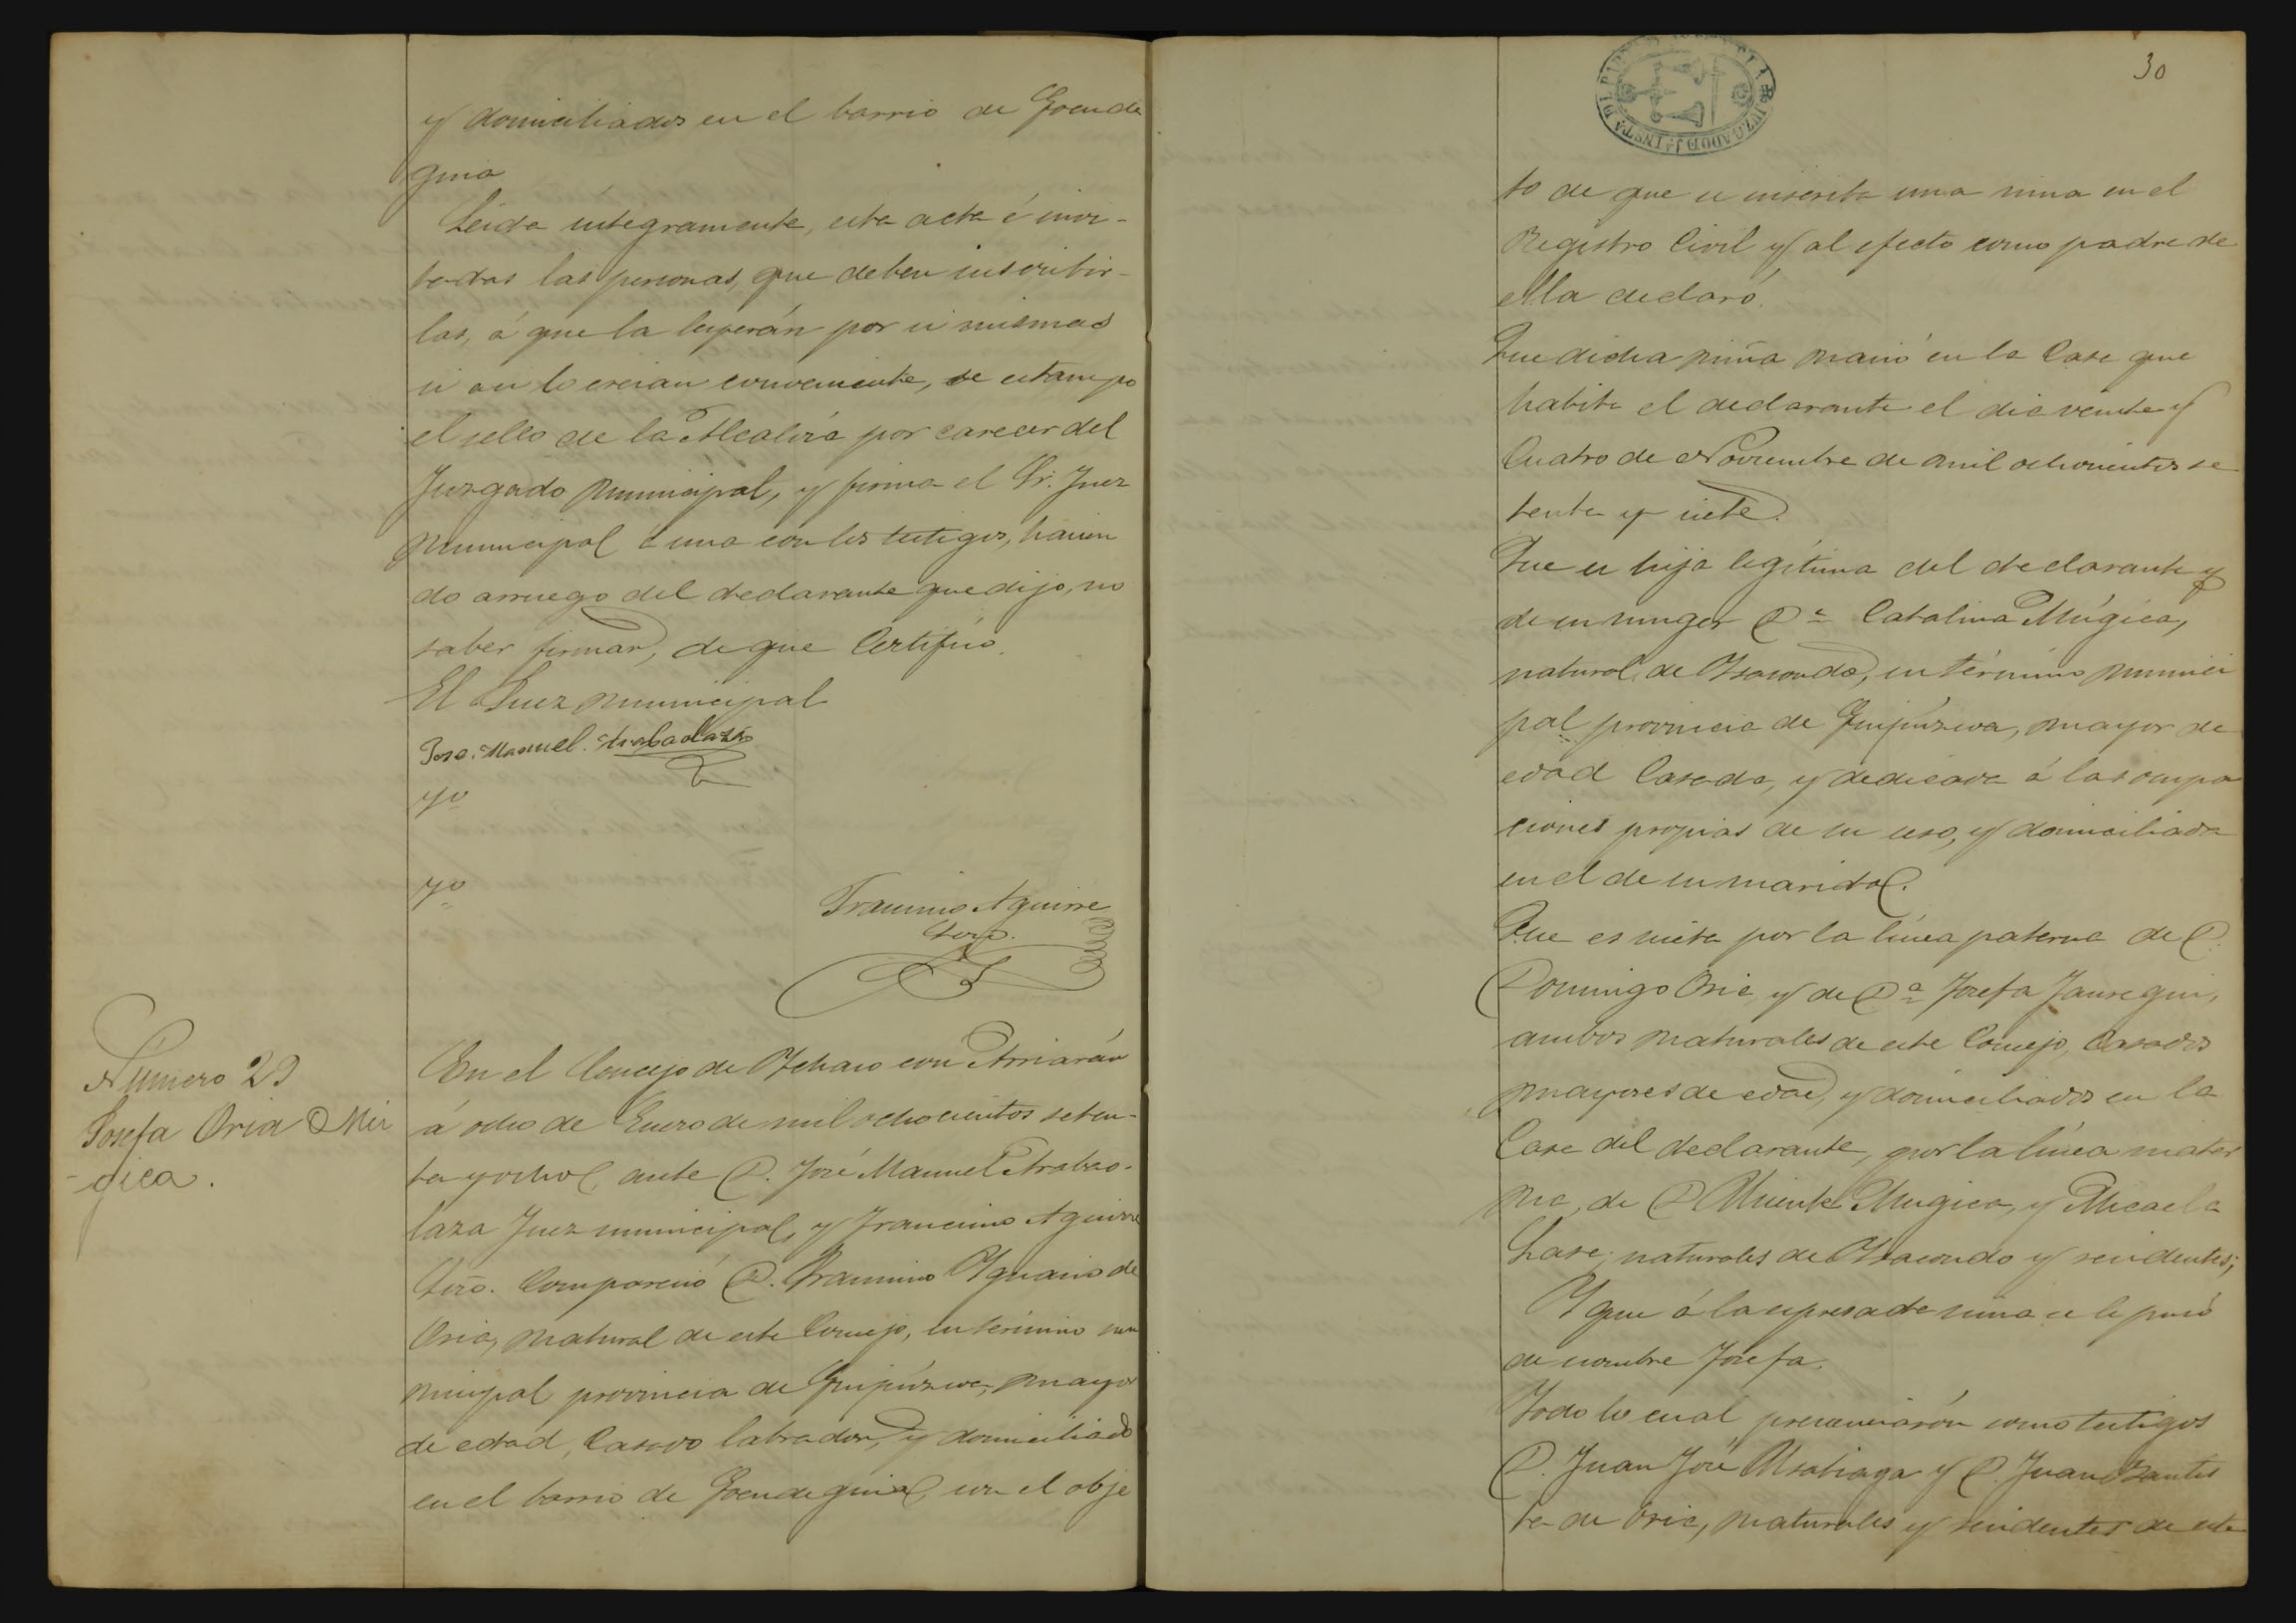 y domiciliados en el barrio de Goende
guia
Leida integramente, esta acta é invi-
tadas las personas, que deben suscribir-
las, á que la leyerán por si mismas
si asi lo creian conveniente, se estampo
el sello de la Alcaldia por carecer del
Juzgado municipal, y firma el Sr. Juez
municipal á una con los testigos, hacien
do arruego del declarante que dijo, no
saber firmar, de que Certifico.
El Juez municipal
Jose. Manuel.
Francisco Aguirre
Número 29
Josefa Oria Mú
-gica.
En el Concejo de Ychaso con Arriarán
á ocho de Enero de mil ochocientos seten-
ta y ocho, ante D. José Manuel Arabao-
laza Juez municipal, y Francisco Aguirre
Srio. Compareció D. Francisco Ygnacio de
Oria, natural de este Concejo, su término mu
nicipal provincia de Guipúzcoa, mayor
de edad, Casado labrador, y domiciliado
en el barrio de Goendeguia, con el obje
30
JUZGADO DE 1ª INSTA DEL PARTIDO
to de que se inscriba una nina en el
Registro Civil y al efecto como padre de
ella declaró.
Que dicha niña nació en la Casa que
habita el declarante el dia veinte y
Cuatro de Noviembre de mil ochocientos se
tenta y siete.
Que es hija legítima del declarante y
de su muger Dª Catalina Múgica,
natural de Ysasondo, su término munici
pal provincia de Guipúzcoa, mayor de
edad Casada, y dedicada á las ocupa
ciones propias de su sexo, y domiciliada
en el de su marido.
Que es nieta por la línea paterna de D.
Domingo Oria y de Dª Josefa Jauregui,
ambos naturales de este Concejo, Casados
mayores de edad, y domiciliados en la
Casa del declarante, por la línea mater
na, de D Vicente Mugica, y Micaela
naturales de Ysasondo y residentes;
Y que á la expresada nina se le puso
de nombre Josefa.
Todo lo cual, presenciarón como testigos
D. Juan José Usabiaga y D. Juan Bautis
ta de Oria, naturales y residentes de este